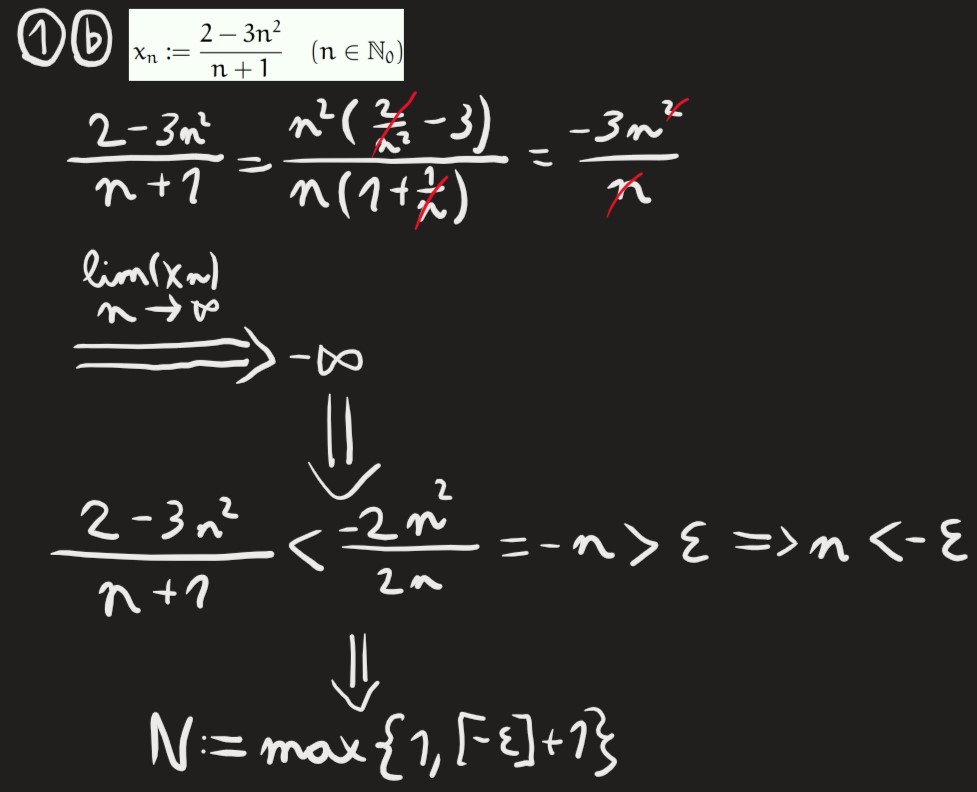 ①ⓑ xₙ := (2 − 3n²)/(n + 1) (n ∈ ℕ₀)
(2 - 3n²)/(n + 1) = n²(2/n² - 3)/n(1 + 1/n) = -3n²/n
lim(xₙ)
n → ∞
⟹ -∞
⇓
(2 - 3n²)/(n + 1) < -2n²/2n = -n > ε => n < -ε
⇓
N := max{1, [-ε]+1}